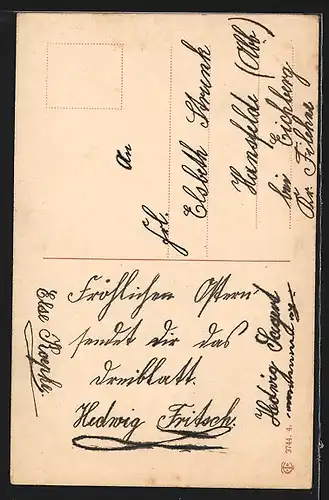 An
Frl.
Elsbeth Strunk
Hansfelde (Abb.)
bei Eichberg
Kr. Filehne
Fröhlichen Ostern
sendet dir das
Dreiblatt.
Hedwig Fritsch.
Else
Hedwig
3744. 4.